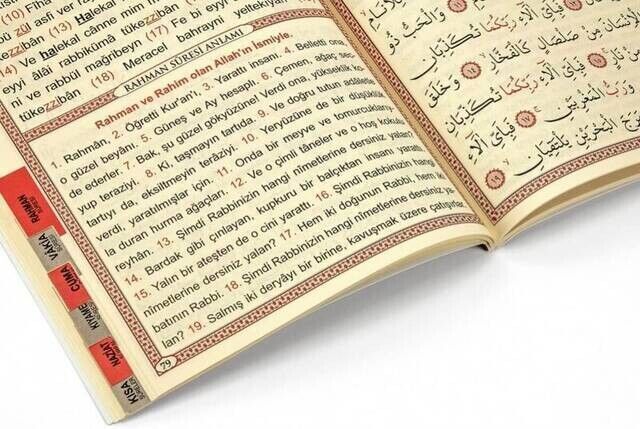 10) Fîha
asfi ver rayhâ
Halekal
tükezzibân (13)
(14) Ve halekal cânne min
eyyi âlâi rabbikümâ tükezzi
ni ve rabbül mağribeyn (17) Fe bi eyyi
tükezzibân (18) Meracel bahrayni yeltekıyâ
RAHMAN SÛRESİ ANLAMI
Rahman ve Rahim olan Allah'ın ismiyle.
1. Rahmân, 2. Öğretti Kur'an'ı, 3. Yarattı insanı. 4. Belletti ona,
o güzel beyânı. 5. Güneş ve Ay hesaplı. 6. Çemen, ağaç sec-
de ederler. 7. Bak, şu güzel gökyüzüne! Verdi ona, yükseklik ko-
yup terazîyi. 8. Ki, taşmayın tartıda. 9. Ve doğru tutun adâletle
tartıyı da, eksiltmeyin terâzîyi. 10. Yeryüzüne de bir düşüklük
verdi, yaratılmışlar için. 11. Onda bir meyve ve tomurcuklanıp
duran hurma ağaçları. 12. Ve o çimli tâneler ve o hoş kokulu
reyhân. 13. Şimdi Rabbinizin hangi nîmetlerine dersiniz yalan?
14. Bardak gibi çınlayan, kupkuru bir balçıktan insanı yarattı.
15. Yalın bir ateşten de o cini yarattı. 16. Şimdi Rabbinizin hangi
nîmetlerine dersiniz yalan? 17. Hem iki doğunun Rabbi, hem iki
batının Rabbi. 18. Şimdi Rabbinizin hangi nîmetlerine dersiniz ya-
lan? 19. Salmış iki deryâyı bir birine, kavuşmak üzere çatışırlar.
79
RAHMAN SÛRESİ
VAKIA SÛRESİ
CUMA SÛRESİ
KIYAME SÛRESİ
NAZİAT SÛRESİ
KISA SÛRELER
وَالْحَبُّ ذُو
فَبِاَيِّ اٰلَٓاءِ رَبِّكُمَا تُكَذِّبَانِ
مِنْ صَلْصَالٍ كَالْفَخَّارِ ﴿١٤﴾ وَخَلَقَ
فَبِاَيِّ اٰلَٓاءِ رَبِّكُمَا تُكَذِّبَانِ
وَرَبُّ الْمَغْرِبَيْنِ ﴿١٧﴾ فَبِاَيِّ اٰلَٓاءِ
الْبَحْرَيْنِ يَلْتَقِيَانِ ﴿١٩﴾